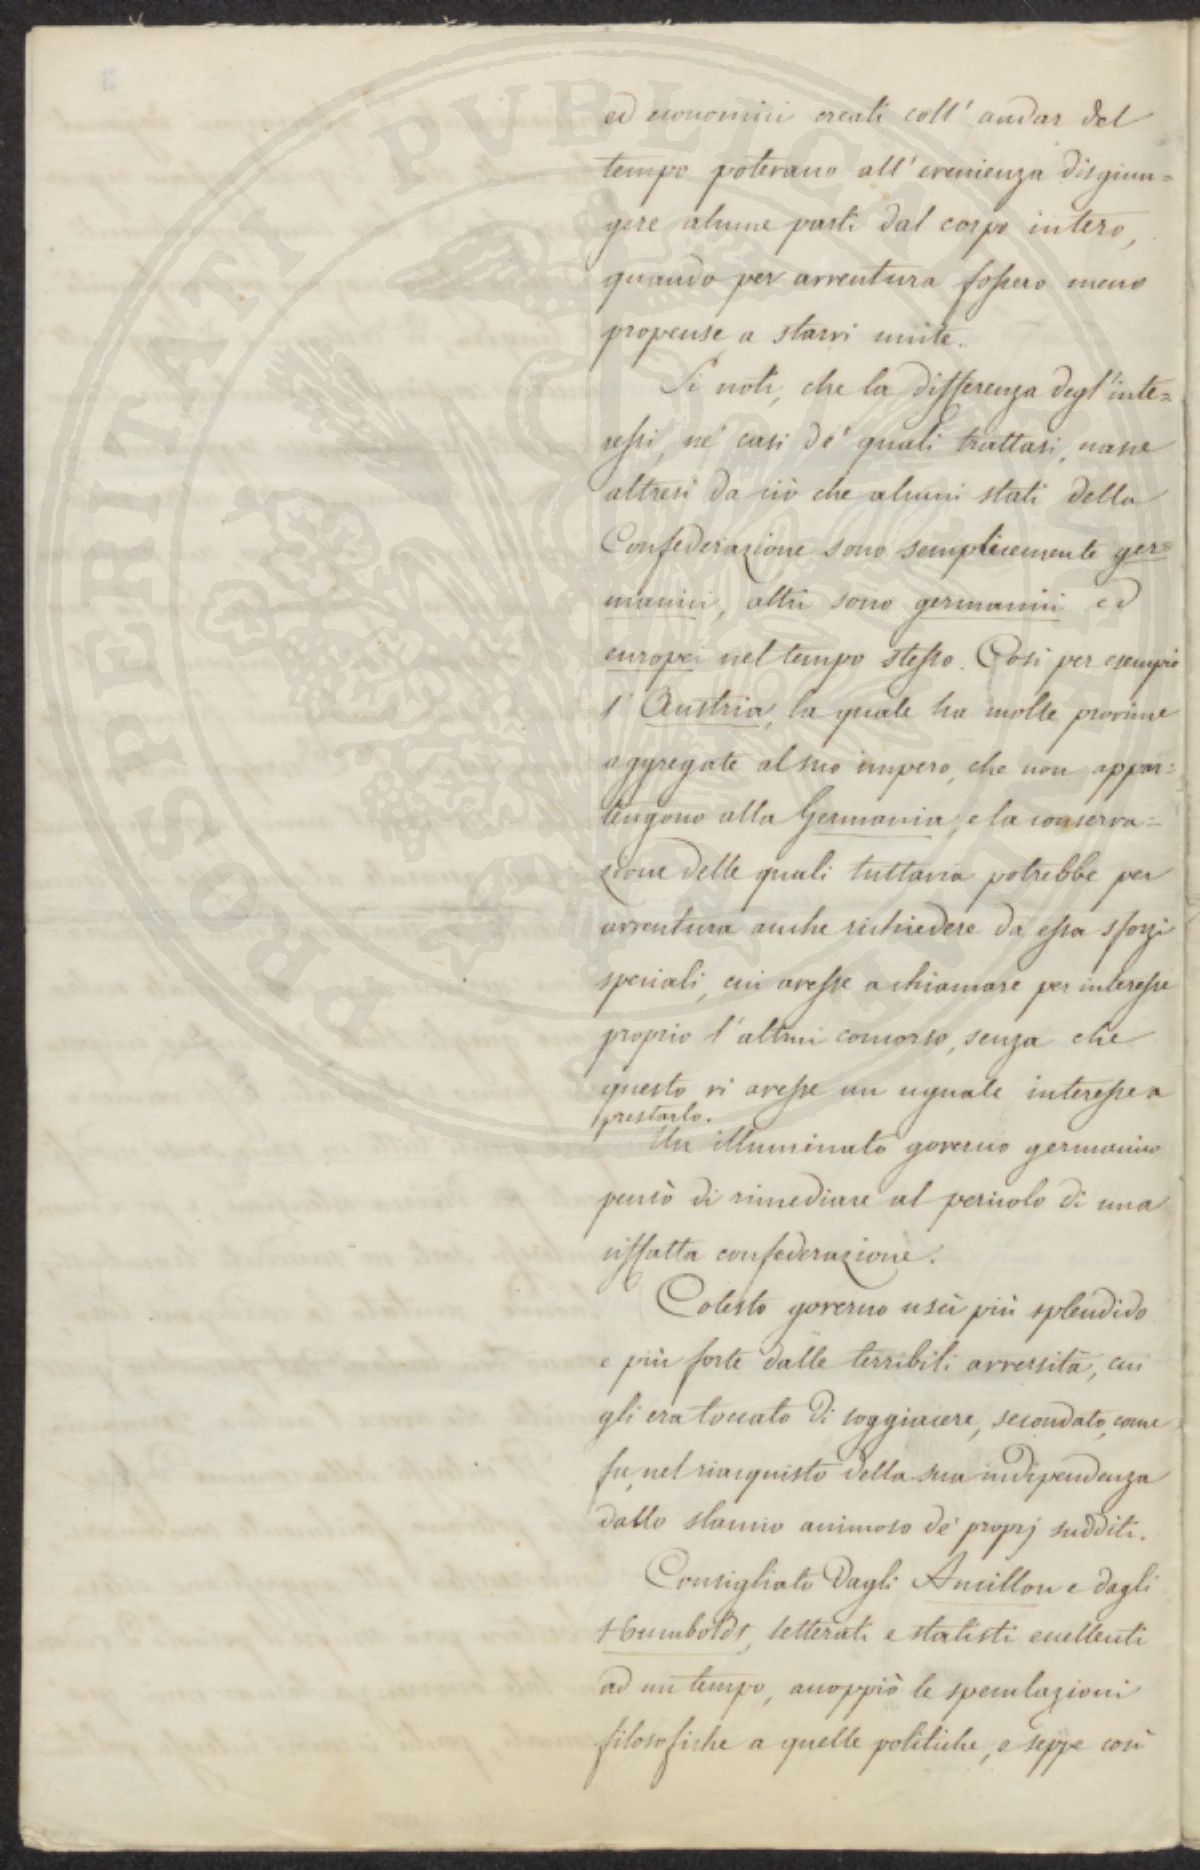 ed economici creati coll' andar del
tempo potevano all' evenienza disgiun=
gere alcune parti dal corpo intero,
quando per avventura fossero meno
propense a starvi unite.
Si noti, che la differenza degl' inte=
ressi, ne' casi de' quali trattasi, nasce
altresì da ciò che alcuni stati della
Confederazione sono semplicemente ger=
manici, altri sono germanici ed
europei nel tempo stesso. Così per esempio
l' Austria, la quale ha molte provincie
aggregate al suo impero, che non appar=
tengono alla Germania, e la conserva=
zione delle quali tuttavia potrebbe per
avventura anche richiedere da essa sforzi
speciali, cui avesse a chiamare per interesse
proprio l' altrui concorso, senza che
questo vi avesse un uguale interesse a
prestarlo.
Un illuminato governo germanico
pensò di rimediare al pericolo di una
siffatta confederazione.
Cotesto governo uscì più splendido
e più forte dalle terribili avversità, cui
gli era toccato di soggiacere, secondato, come
fu, nel riacquisto della sua indipendenza
dallo slancio animoso de' proprj sudditi.
Consigliato dagli Ancillon e dagli
Humboldt, letterati e statisti eccellenti
ad un tempo, accoppiò le speculazioni
filosofiche a quelle politiche, e seppe così
PROSPERITATI PVBLICAE